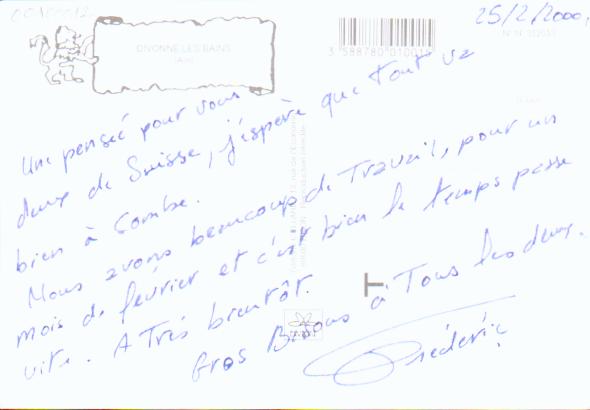 25/2/2000.
DIVONNE LES BAINS
(Ain)
3 588780 010011
Une pensée pour vous
deux de Suisse, j'espère que tout va
bien à Combe.
Nous avons beaucoup de Travail, pour un
mois de février et c'est bien le temps passe
vite. A Très bientôt.
Gros Bisous à Tous les deux.
Frédéric